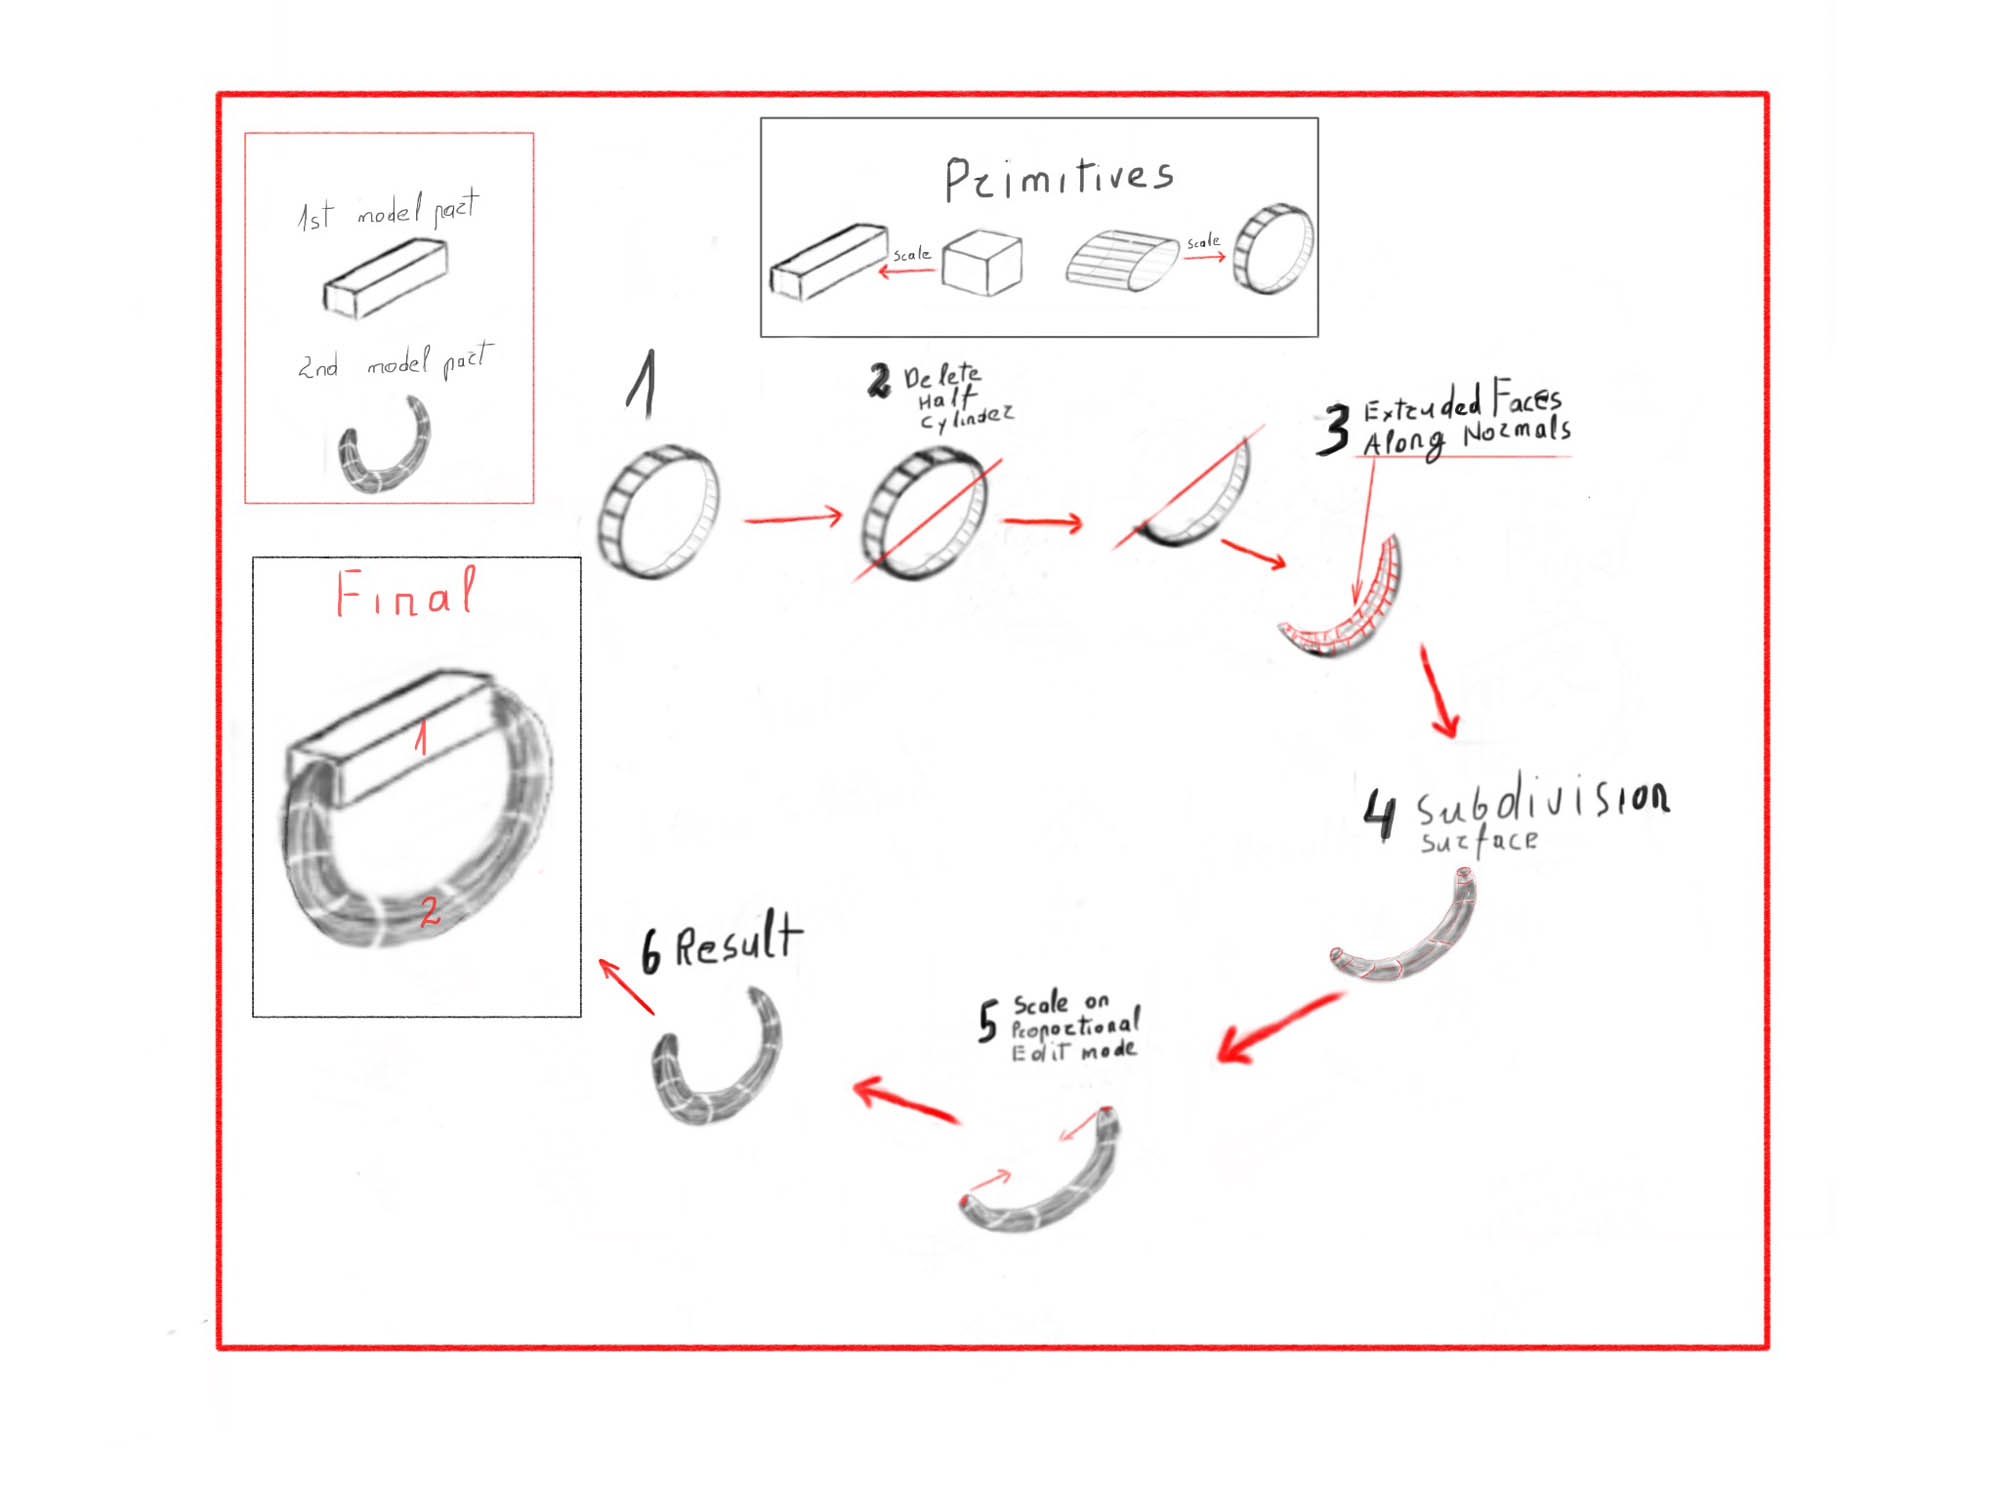 1st model part
2nd model part
Primitives
scale
scale
1
2 Delete
Half
Cylinder
3 Extruded Faces
Along Normals
4 Subdivision
Surface
5 Scale on
Proportional
Edit mode
6 Result
Final
1
2